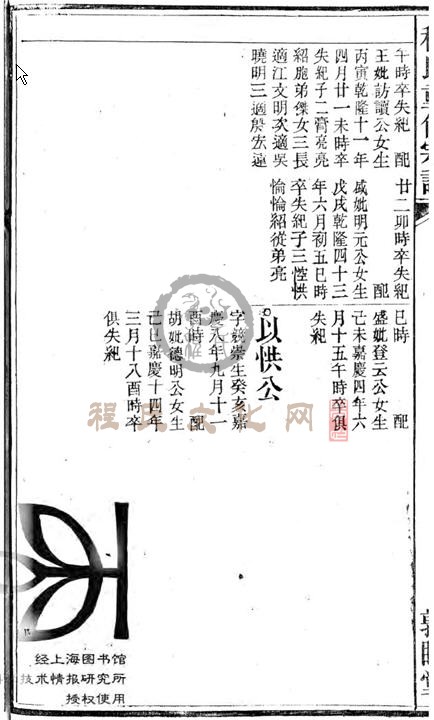 午時卒失紀 配
王妣訪讀公女生
丙寅乾隆十一年
四月廿一未時卒
失紀子二膏亮亮
紹胞弟傑女三長
適江文明次適吳
曉明三適詹宏遠
廿二卯時卒失紀
配
戚妣明元公女生
戊戌乾隆四十三
年六月初五巳時
卒失紀子三㤨
愉愉紹從弟亮
巳時 配
盛妣登云公女生
己未嘉慶四年六
月十五午時卒俱
失紀
以㤨公
字競榮生癸亥嘉
慶八年九月十一
酉時 配
胡妣德明公女生
己巳嘉慶十四年
三月十八酉時卒
俱失紀
程氏文化网
经上海图书馆
技术情报研究所
授权使用